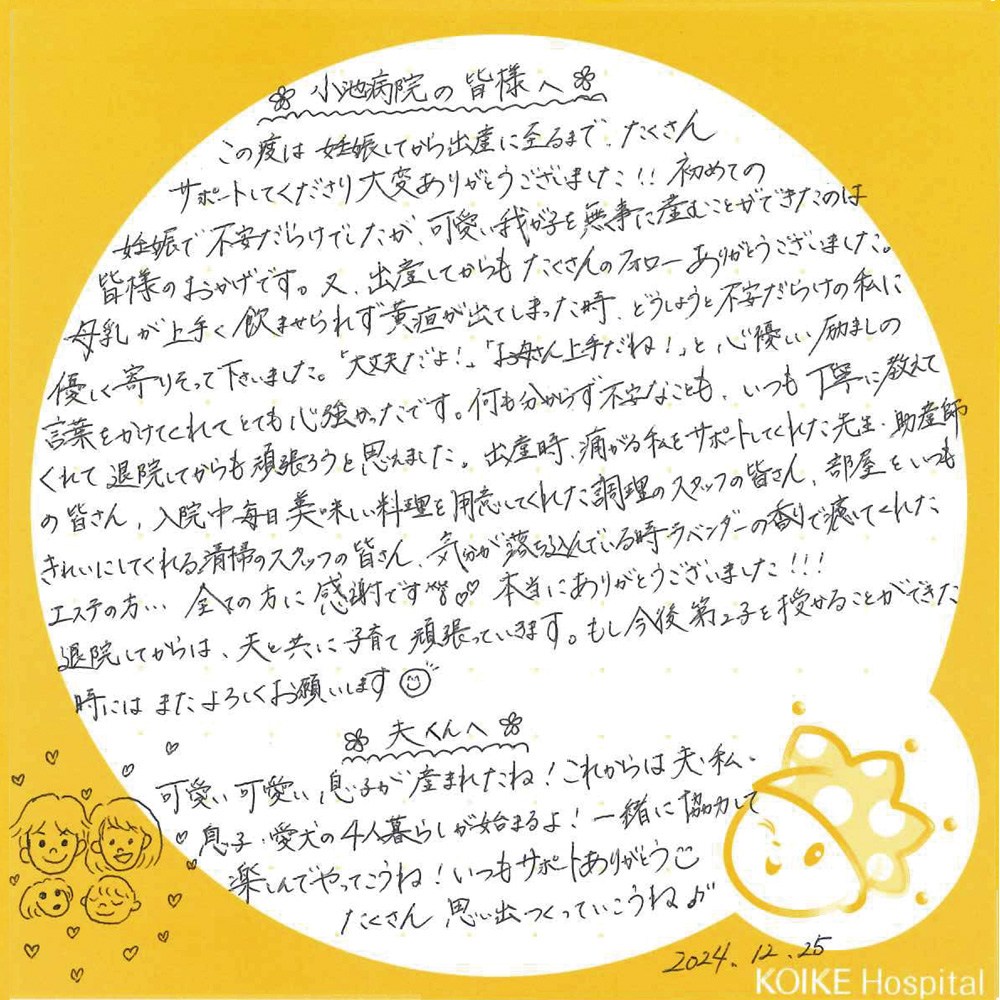 小池病院の皆様へ
この度は妊娠してから出産に至るまで、たくさん
サポートしてくださり大変ありがとうございました!! 初めての
妊娠で不安だらけでしたが、可愛い我が子を無事に産むことができたのは
皆様のおかげです。又、出産してからもたくさんのフォローありがとうございました。
母乳が上手く飲ませられず黄疸が出てしまった時、どうしようと不安だらけの私に
優しく寄りそって下さいました。「大丈夫だよ!」「お母さん上手だね!」と、心優しい励ましの
言葉をかけてくれてとても心強かったです。何も分からず不安なことも、いつも丁寧に教えて
くれて退院してからも頑張ろうと思えました。出産時、痛がる私をサポートしてくれた先生・助産師
の皆さん、入院中毎日美味しい料理を用意してくれた調理のスタッフの皆さん、部屋をいつも
きれいにしてくれる清掃のスタッフの皆さん、気分が落ち込んでいる時ラベンダーの香りで癒してくれた
エステの方… 全ての方に感謝です♡ 本当にありがとうございました!!!
退院してからは、夫と共に子育て頑張っていきます。もし今後第2子を授かることができた
時にはまたよろしくお願いします
夫くんへ
可愛い可愛い息子が産まれたね!これからは夫・私・
息子・愛犬の4人暮らしが始まるよ!一緒に協力して
楽しんでやってこうね!いつもサポートありがとう
たくさん思い出つくっていこうね♪
2024.12.25
KOIKE Hospital